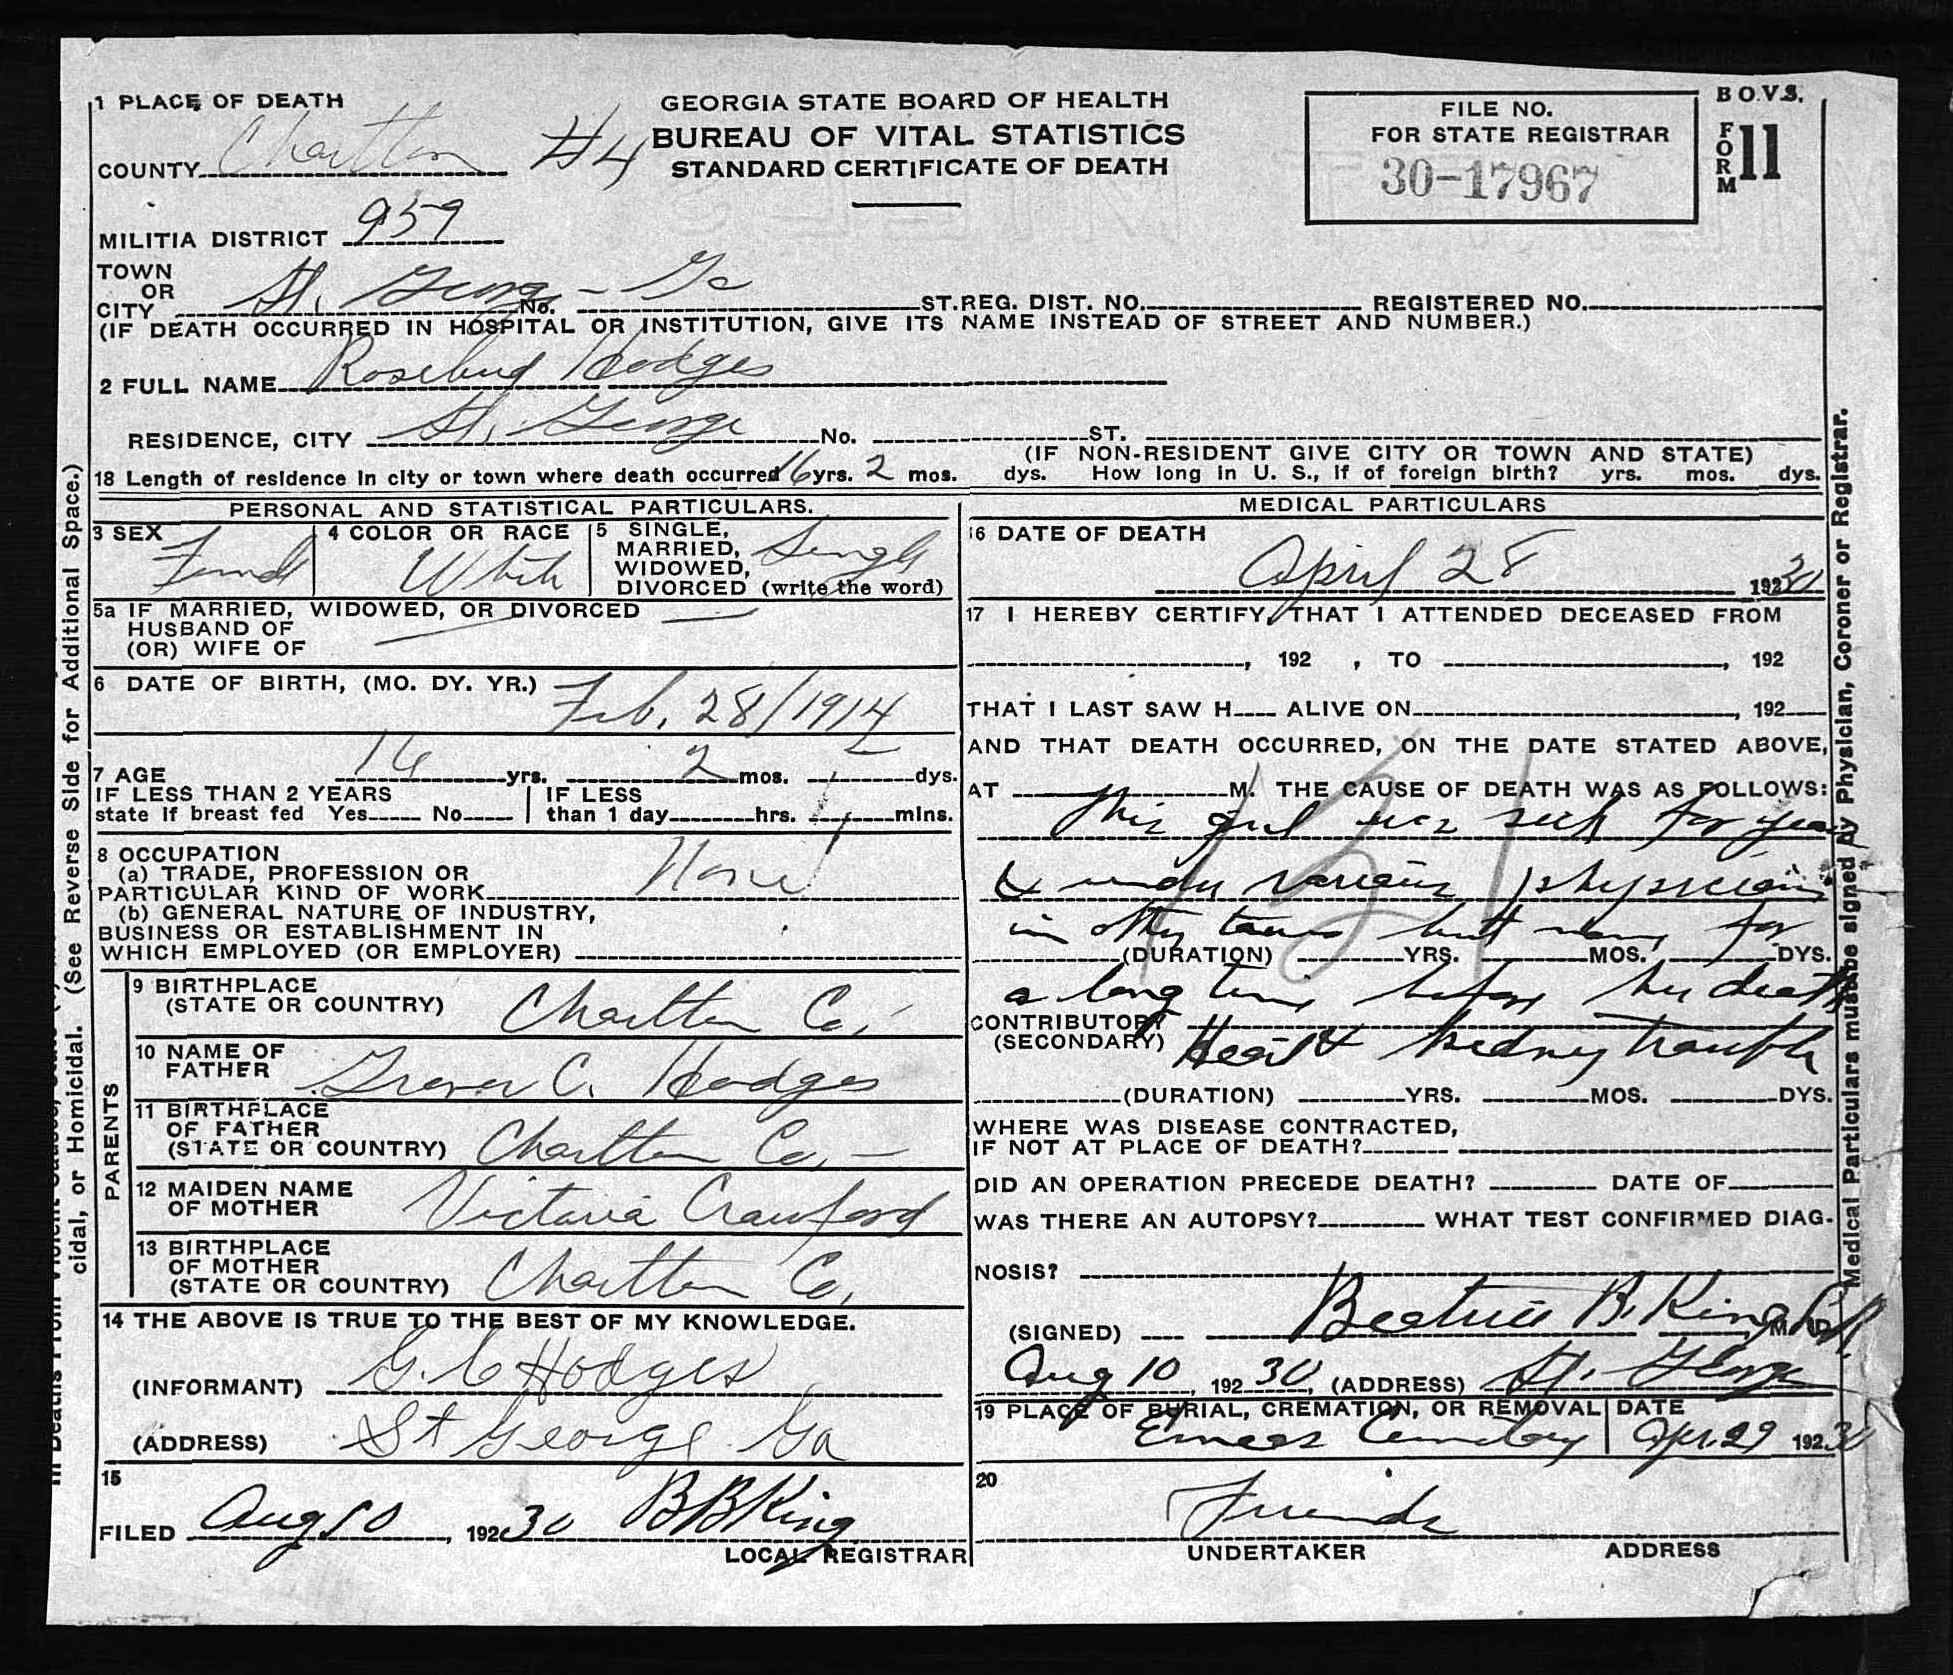 1 PLACE OF DEATH
COUNTY Charlton #4
GEORGIA STATE BOARD OF HEALTH
BUREAU OF VITAL STATISTICS
STANDARD CERTIFICATE OF DEATH
FILE NO.
FOR STATE REGISTRAR
30-17967
B.O.V.S.
FORM 11
MILITIA DISTRICT 959
TOWN
OR
CITY St. George - Ga No. ST. REG. DIST. NO. REGISTERED NO.
(IF DEATH OCCURRED IN HOSPITAL OR INSTITUTION, GIVE ITS NAME INSTEAD OF STREET AND NUMBER.)
2 FULL NAME Rosebud Hodges
RESIDENCE, CITY St. George No. ST.
(IF NON-RESIDENT GIVE CITY OR TOWN AND STATE)
18 Length of residence in city or town where death occurred 16 yrs. 2 mos. dys. How long in U. S., if of foreign birth? yrs. mos. dys.
PERSONAL AND STATISTICAL PARTICULARS.
3 SEX Female
4 COLOR OR RACE White
5 SINGLE,
MARRIED,
WIDOWED,
DIVORCED (write the word) Single
5a IF MARRIED, WIDOWED, OR DIVORCED —
HUSBAND OF
(OR) WIFE OF —
6 DATE OF BIRTH, (MO. DY. YR.) Feb. 28/1914
7 AGE 16 yrs. 2 mos. dys.
IF LESS THAN 2 YEARS
state if breast fed Yes No
IF LESS
than 1 day hrs. mins.
8 OCCUPATION
(a) TRADE, PROFESSION OR
PARTICULAR KIND OF WORK None
(b) GENERAL NATURE OF INDUSTRY,
BUSINESS OR ESTABLISHMENT IN
WHICH EMPLOYED (OR EMPLOYER)
PARENTS
9 BIRTHPLACE
(STATE OR COUNTRY) Charlton Co.
10 NAME OF
FATHER Grover C. Hodges
11 BIRTHPLACE
OF FATHER
(STATE OR COUNTRY) Charlton Co. —
12 MAIDEN NAME
OF MOTHER Victoria Crawford
13 BIRTHPLACE
OF MOTHER
(STATE OR COUNTRY) Charlton Co.
14 THE ABOVE IS TRUE TO THE BEST OF MY KNOWLEDGE.
(INFORMANT) G. C Hodges
(ADDRESS) St George Ga
15
FILED Aug 10, 1930 B B King
LOCAL REGISTRAR
MEDICAL PARTICULARS
16 DATE OF DEATH
April 28 19230
17 I HEREBY CERTIFY, THAT I ATTENDED DECEASED FROM
, 192 , TO , 192
THAT I LAST SAW H ALIVE ON , 192
AND THAT DEATH OCCURRED, ON THE DATE STATED ABOVE,
AT M. THE CAUSE OF DEATH WAS AS FOLLOWS:
This girl was sick for years
& under various physicians
in other towns but none for
(DURATION) YRS. MOS. DYS.
a long time before her death
131
CONTRIBUTORY
(SECONDARY) Heart & kidney trouble
(DURATION) YRS. MOS. DYS.
WHERE WAS DISEASE CONTRACTED,
IF NOT AT PLACE OF DEATH?
DID AN OPERATION PRECEDE DEATH? DATE OF
WAS THERE AN AUTOPSY? WHAT TEST CONFIRMED DIAG-
NOSIS?
(SIGNED) Beatrice B. King M. D.
Aug 10, 19230, (ADDRESS) St. George
19 PLACE OF BURIAL, CREMATION, OR REMOVAL DATE
Cemetery Apr. 29 19230
20
Friends
UNDERTAKER ADDRESS
cidal, or Homicidal. (See Reverse Side for Additional Space.)
Medical Particulars must be signed by Physician, Coroner or Registrar.